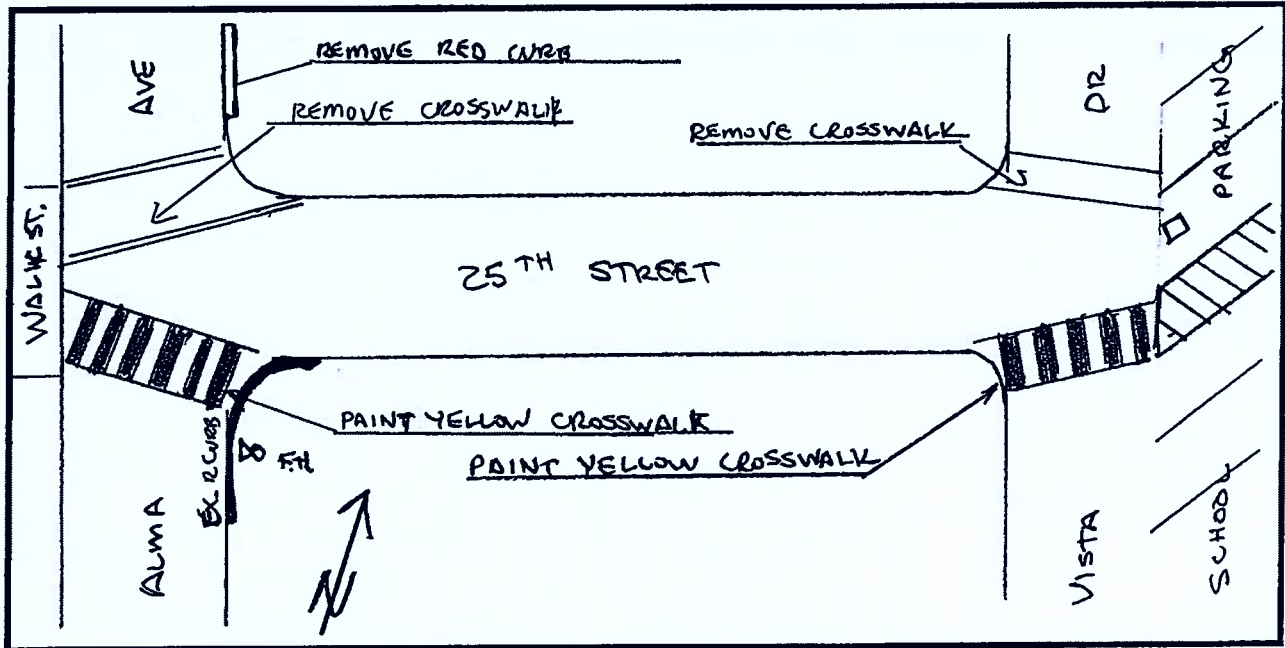 REMOVE RED CURB
AVE
REMOVE CROSSWALK
REMOVE CROSSWALK
DR
PARKING
WALK ST.
25TH STREET
PAINT YELLOW CROSSWALK
PAINT YELLOW CROSSWALK
EX. R CURB
F.H.
ALMA
N
VISTA
SCHOOL